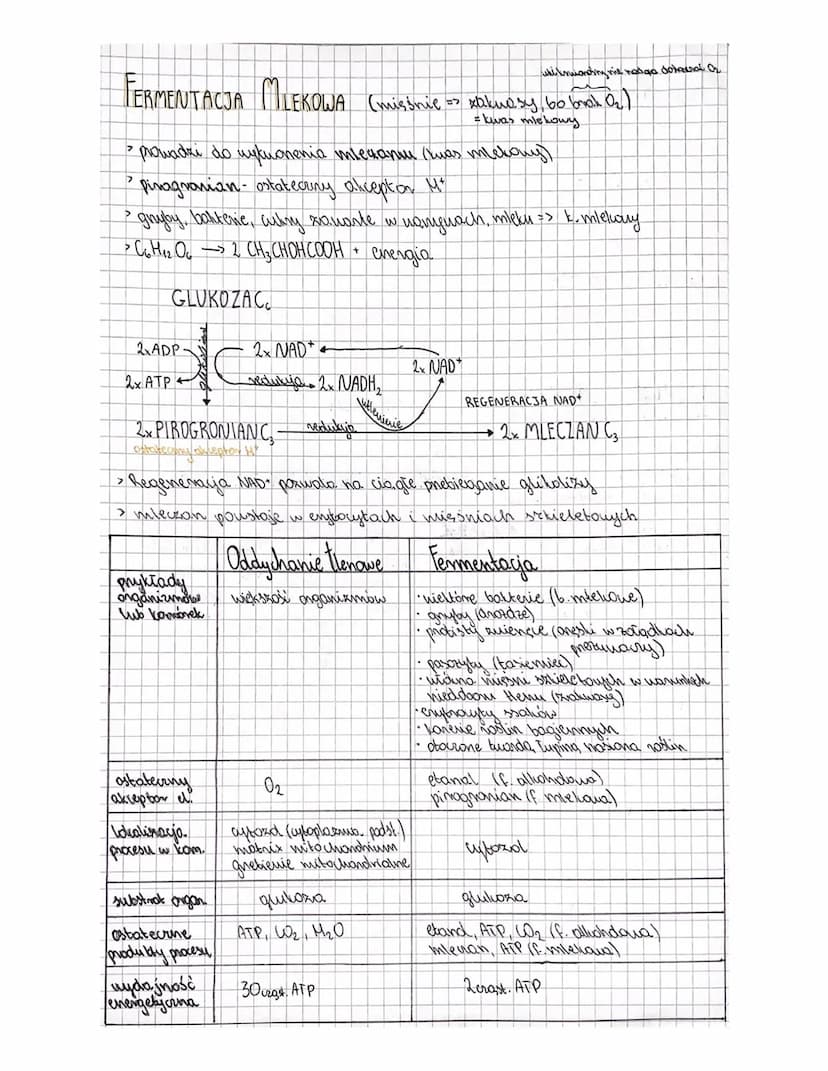 układ krwionośny nie nadąża dotleniać O₂
FERMENTACJA MLEKOWA (mięśnie => zakwasy, bo brak O₂)
= kwas mlekowy
> prowadzi do wytworzenia mleczanu (kwas mlekowy)
> pirogronian - ostateczny akceptor H⁺
> grzyby, bakterie, cukry zawarte w warzywach, mleku => k. mlekowy
> C₆H₁₂O₆ → 2 CH₃CHOHCOOH + energia
GLUKOZA C₆
glikoliza
2xADP
2x NAD⁺
2x NAD⁺
2x ATP
redukcja
2x NADH₂
utlenienie
REGENERACJA NAD⁺
2x PIROGRONIAN C₃
redukcja
2x MLECZAN C₃
ostateczny akceptor H⁺
> Regeneracja NAD⁺ pozwala na ciągłe przebieganie glikolizy
> mleczan powstaje w erytrocytach i mięśniach szkieletowych
Oddychanie tlenowe
Fermentacja
przykłady
organizmów
lub komórek
większość organizmów
· niektóre bakterie (b. mlekowe)
· grzyby (drożdże)
· protisty zwierzęce (orzęski w żołądkach
przeżuwaczy)
· pasożyty (tasiemiec)
· włókna mięśni szkieletowych w warunkach
niedoboru tlenu (zakwasy)
· erytrocyty ssaków
· korzenie roślin bagiennych
· otoczone twardą łupiną nasiona roślin
ostateczny
akceptor el.
O₂
etanal (f. alkoholowa)
pirogronian (f mlekowa)
lokalizacja
procesu w kom.
cytozol (cytoplazma podst.)
matrix mitochondrium
grzebienie mitochondrialne
cytozol
substrat organ.
glukoza
glukoza
ostateczne
produkty procesu
ATP, CO₂, H₂O
etanol, ATP, CO₂ (f. alkoholowa)
mleczan, ATP (f. mlekowa)
wydajność
energetyczna
30 cząst. ATP
2 cząst. ATP